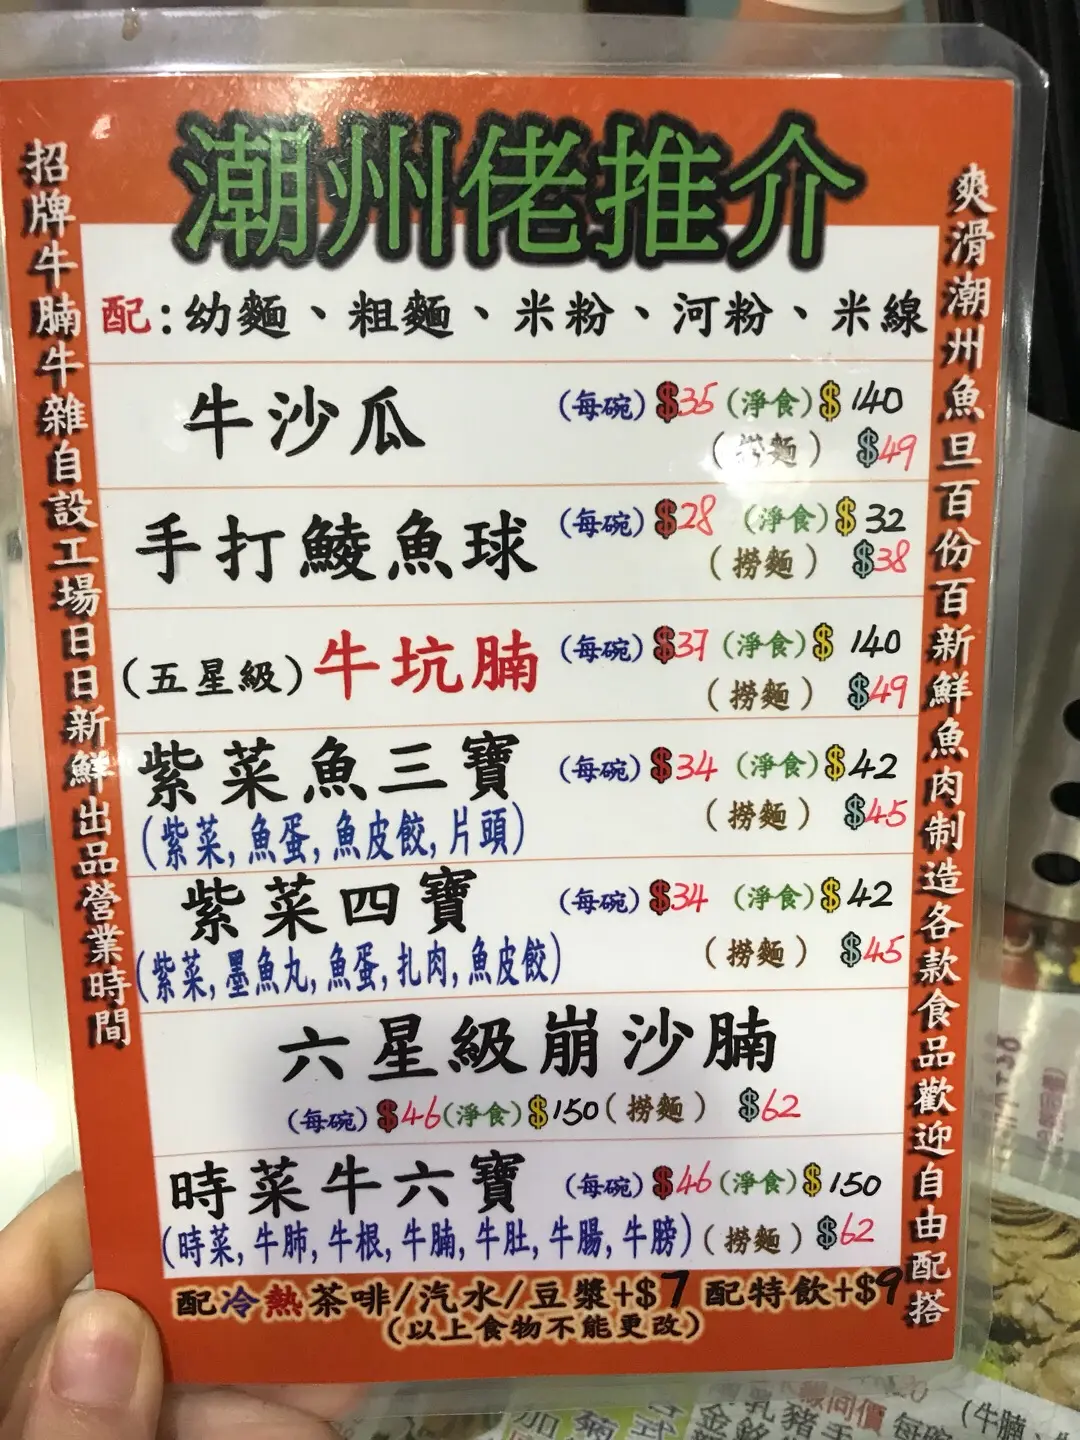 潮州佬推介
招牌牛腩牛雜自設工場日日新鮮出品營業時間
配:幼麵、粗麵、米粉、河粉、米線
牛沙瓜 (每碗) $35 (淨食) $140
(撈麵) $49
手打鯪魚球 (每碗) $28 (淨食) $32
(撈麵) $38
(五星級) 牛坑腩 (每碗) $37 (淨食) $140
(撈麵) $49
紫菜魚三寶 (每碗) $34 (淨食) $42
(紫菜,魚蛋,魚皮餃,片頭) (撈麵) $45
紫菜四寶 (每碗) $34 (淨食) $42
(紫菜,墨魚丸,魚蛋,扎肉,魚皮餃) (撈麵) $45
六星級崩沙腩
(每碗) $46 (淨食) $150 (撈麵) $62
時菜牛六寶 (每碗) $46 (淨食) $150
(時菜,牛肺,牛根,牛腩,牛肚,牛腸,牛膀) (撈麵) $62
配冷熱茶啡/汽水/豆漿+$7 配特飲+$9
(以上食物不能更改)
爽滑潮州魚旦百份百新鮮魚肉制造各款食品歡迎自由配搭
線同價 每碗 (牛腩、